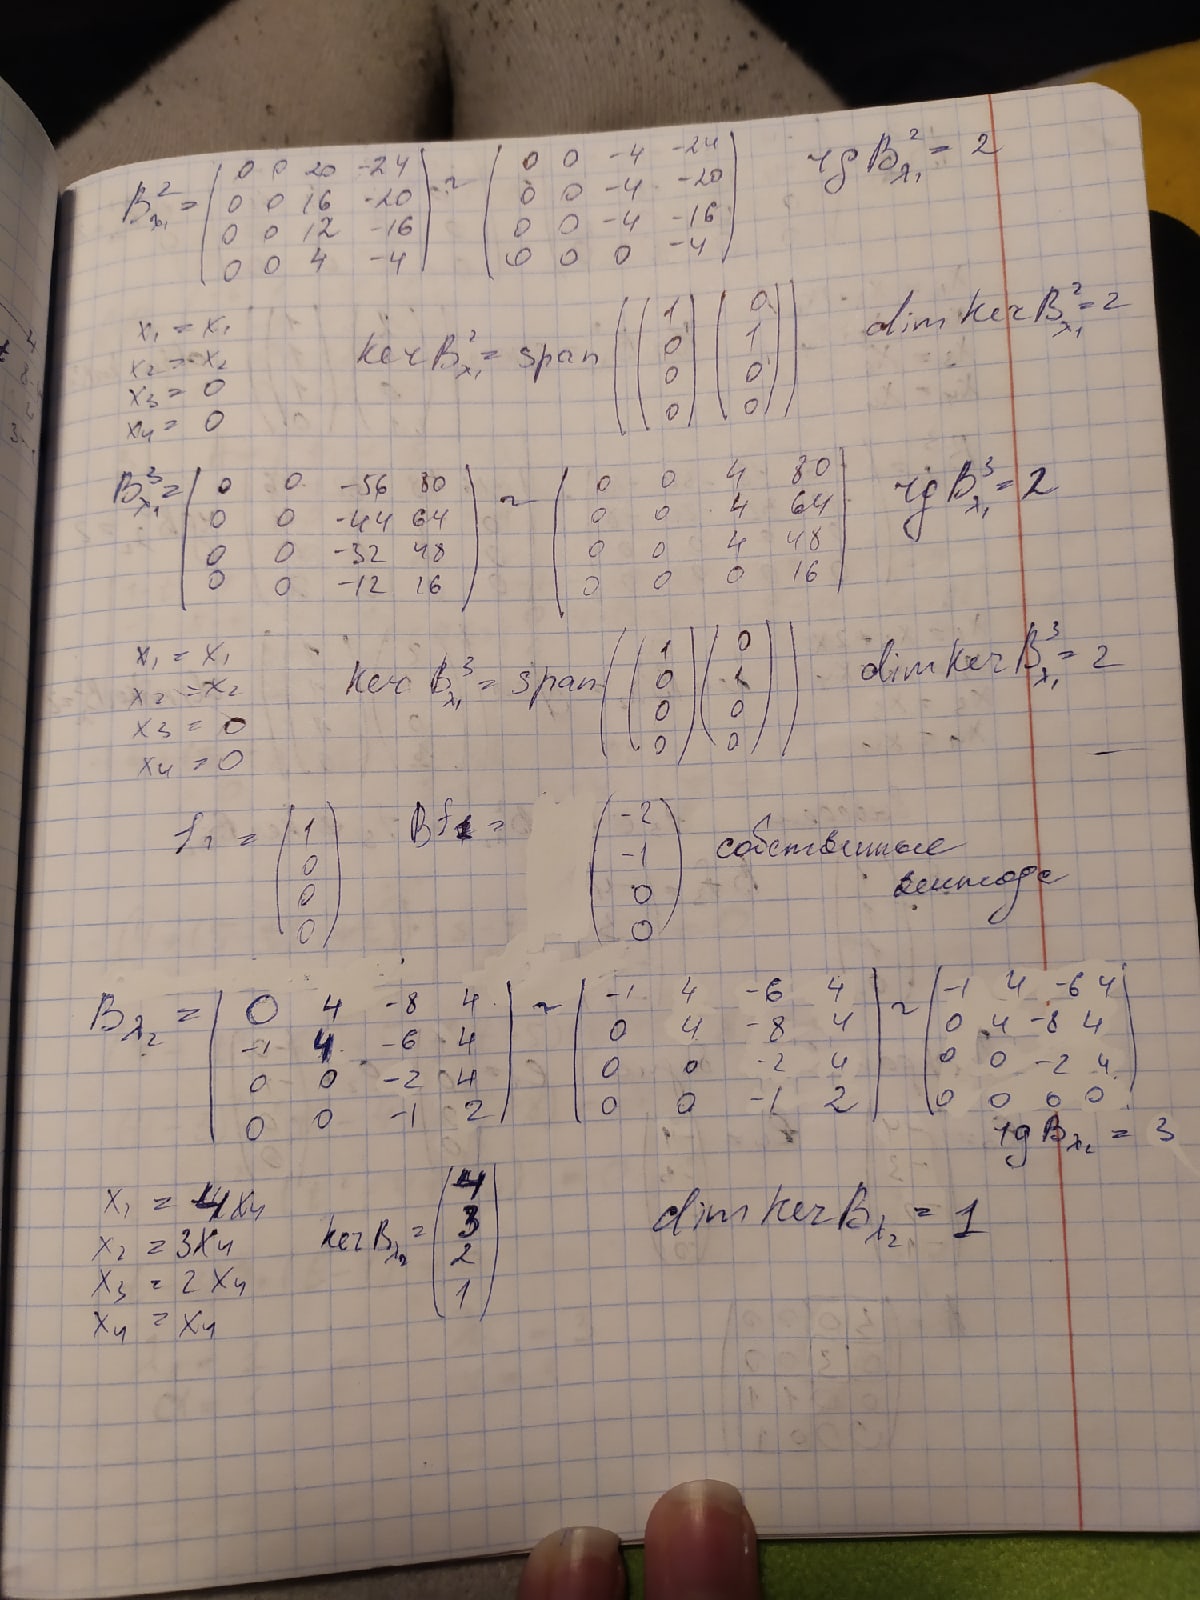 B²λ₁ = ( 0 0 20 -24 ; 0 0 16 -20 ; 0 0 12 -16 ; 0 0 4 -4 ) ~ ( 0 0 -4 -24 ; 0 0 -4 -20 ; 0 0 -4 -16 ; 0 0 0 -4 ) rg B²λ₁ = 2
x₁ = x₁
x₂ = x₂
x₃ = 0
x₄ = 0
ker B²λ₁ = span ( ( 1 ; 0 ; 0 ; 0 ) ( 0 ; 1 ; 0 ; 0 ) ) dim ker B²λ₁ = 2
B³λ₁ = ( 0 0 -56 80 ; 0 0 -44 64 ; 0 0 -32 48 ; 0 0 -12 16 ) ~ ( 0 0 4 80 ; 0 0 4 64 ; 0 0 4 48 ; 0 0 0 16 ) rg B³λ₁ = 2
x₁ = x₁
x₂ = x₂
x₃ = 0
x₄ = 0
ker B³λ₁ = span ( ( 1 ; 0 ; 0 ; 0 ) ( 0 ; 1 ; 0 ; 0 ) ) dim ker B³λ₁ = 2
f₁ = ( 1 ; 0 ; 0 ; 0 ) Bf₁ = ( -2 ; -1 ; 0 ; 0 ) собственные
Bλ₂ = ( 0 4 -8 4 ; -1 4 -6 4 ; 0 0 -2 4 ; 0 0 -1 2 ) ~ ( -1 4 -6 4 ; 0 4 -8 4 ; 0 0 -2 4 ; 0 0 -1 2 ) ~ ( -1 4 -6 4 ; 0 4 -8 4 ; 0 0 -2 4 ; 0 0 0 0 )
rg Bλ₂ = 3
x₁ = 4x₄
x₂ = 3x₄
x₃ = 2x₄
x₄ = x₄
ker Bλ₂ = ( 4 ; 3 ; 2 ; 1 ) dim ker Bλ₂ = 1